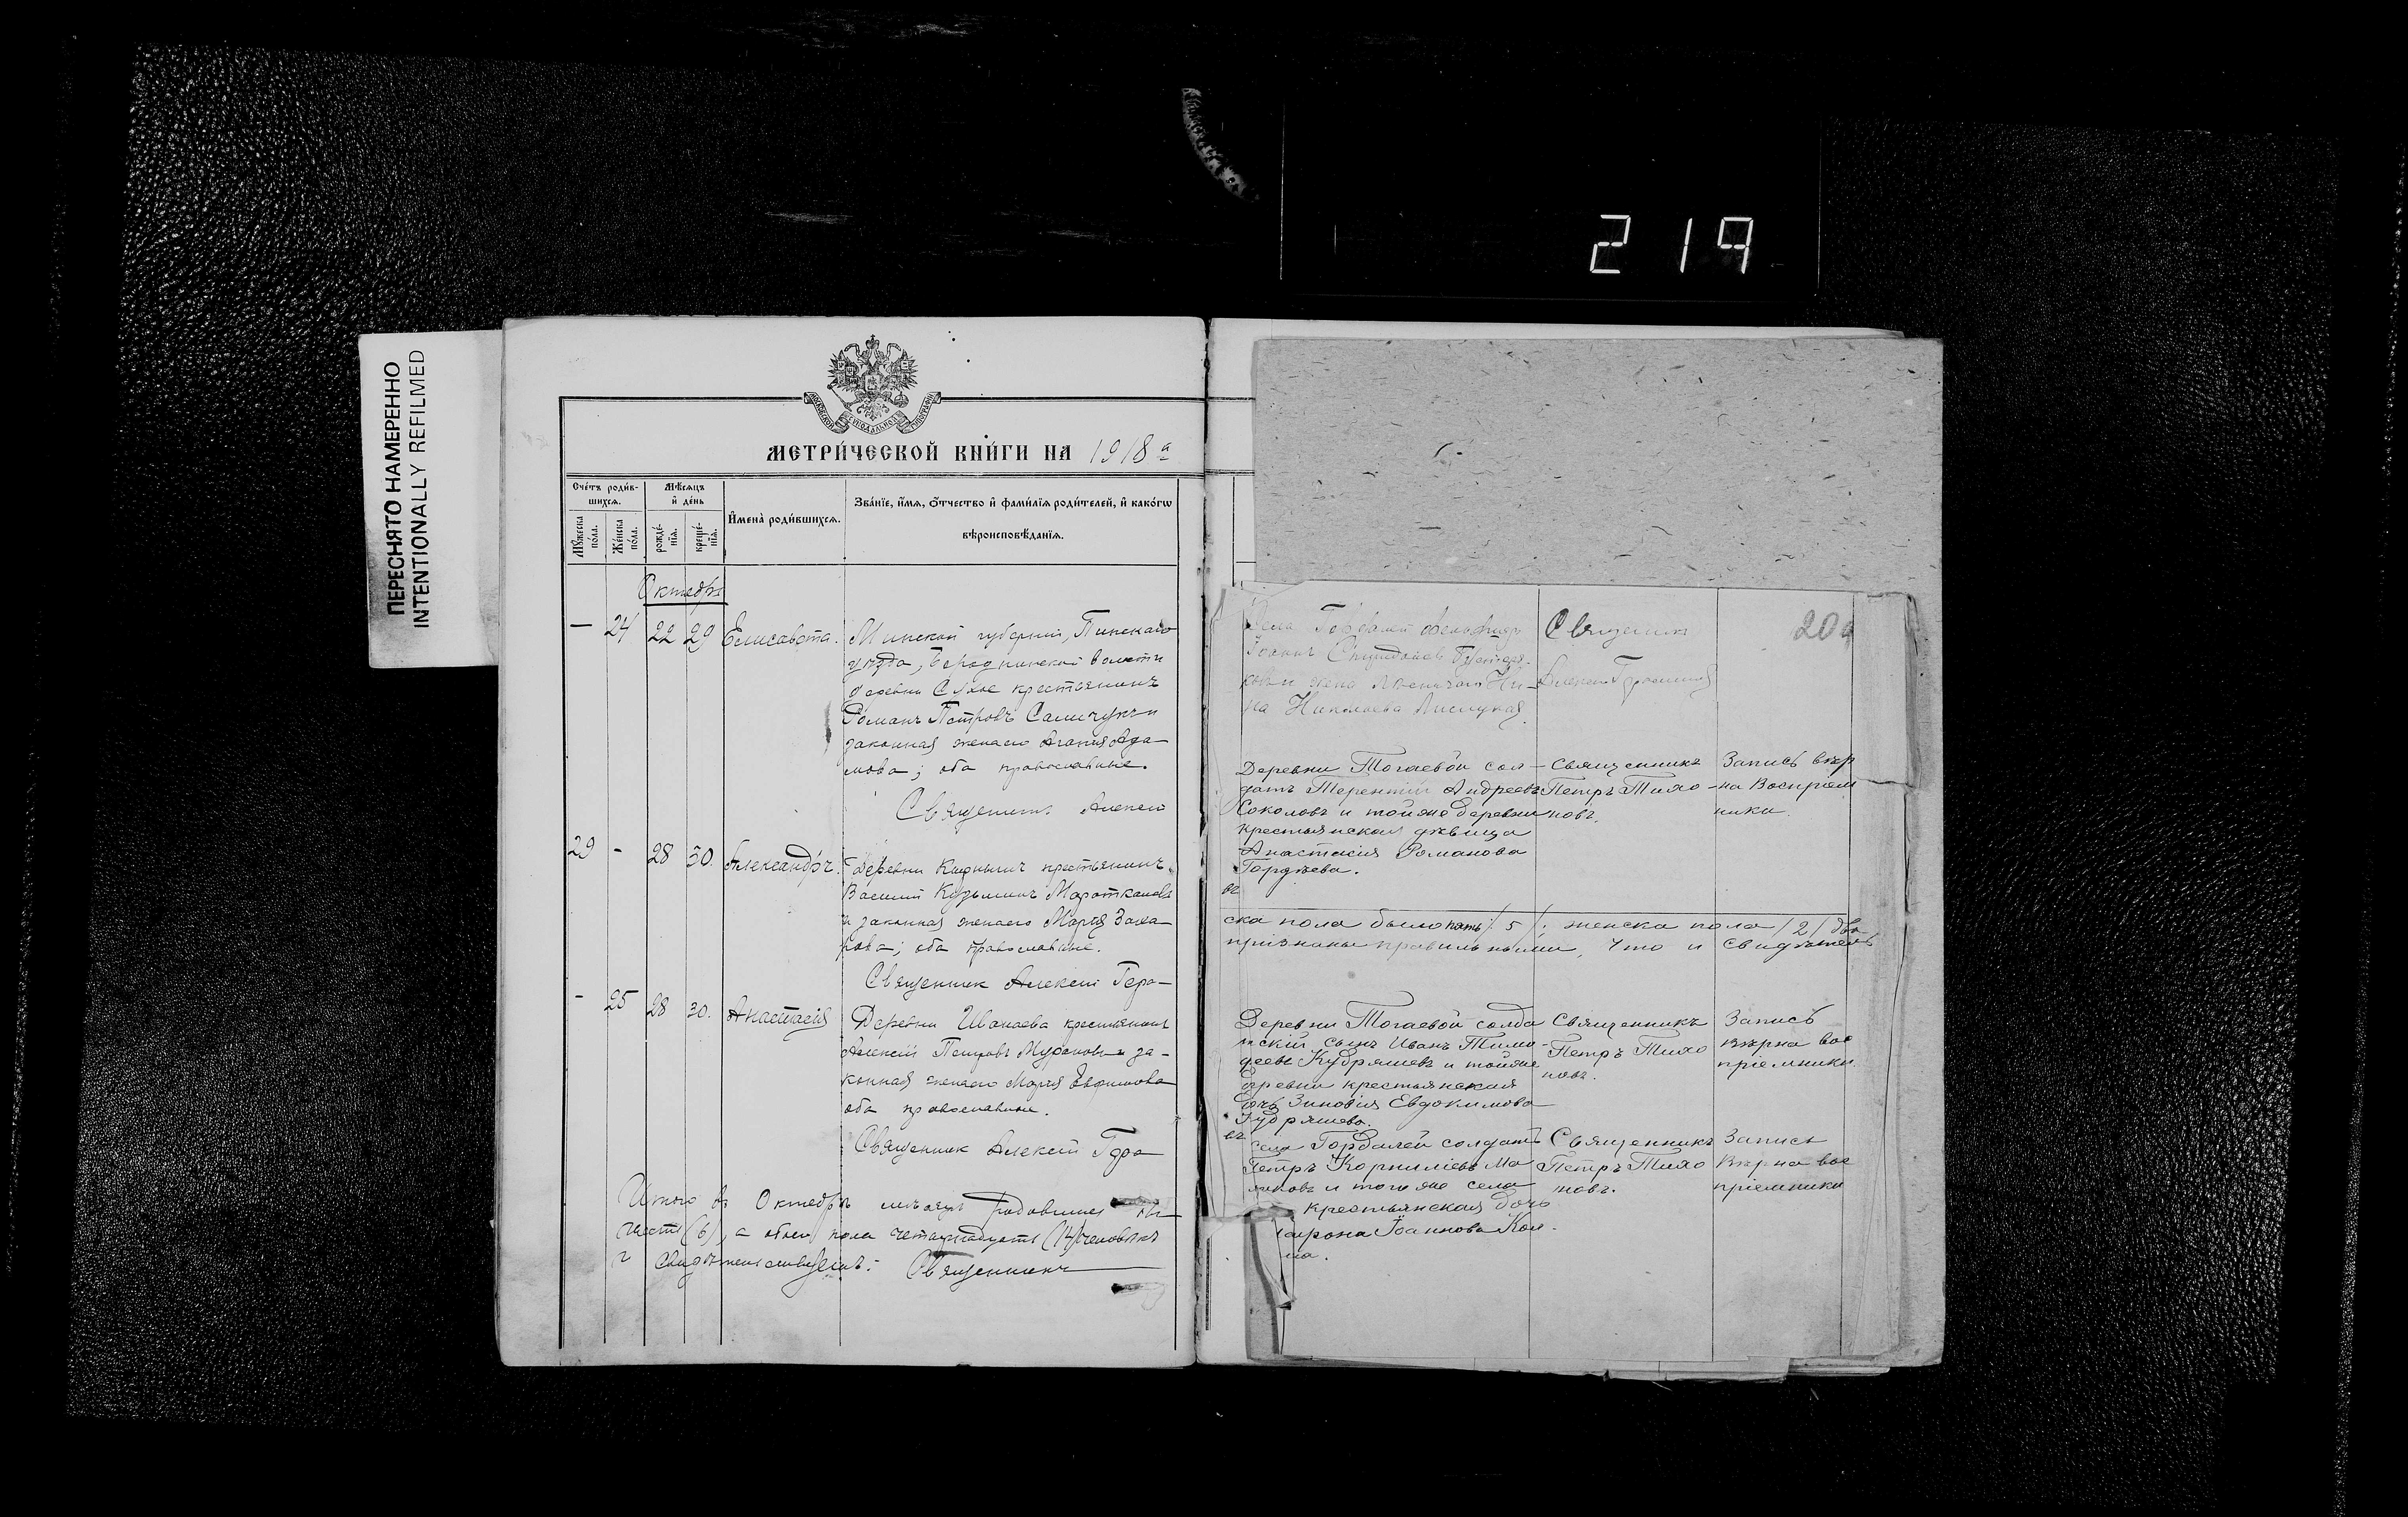 219
ПЕРЕСНЯТО НАМЕРЕННО
INTENTIONALLY REFILMED
МЕТРИ́ЧЕСКОЙ КНИ́ГИ НА 1918 г
Сче́тъ роди́в-
шихся.
Мꙋ́жеска
по́ла.
Же́нска
по́ла.
Мѣ́сяцъ
и҆ де́нь
рожде́-
нїѧ.
креще́-
нїѧ.
И҆мена̀ роди́вшихсѧ.
Зва́нїе, и҆́мѧ, ѻ҆́тчество и҆ фами́лїѧ роди́телей, и҆ како́гѡ
вѣроисповѣ́данїѧ.
Октябрь
— 24 22 29 Елисавета.
Минской губернiи, Пинскаго
уѣзда, волости
деревни крестьянинъ
Романъ Петровъ и
законная жена его Ада-
мова; оба православные.
Священникъ Алексiй
29 - 28 30. Александръ.
Деревни крестьянинъ
Василiй Козьминъ
и законная жена его Марiя Заха-
рова; оба православные.
Священник Алексiй Гера-
- 25 28 30. Анастасiя
Деревни Шанаева крестьянинъ
Алексiй Петровъ и за-
конная жена его Марiя Евфимова
оба православные.
Священник Алексiй Гера
Итого въ Октябрѣ мѣсяцѣ родившихся
шесть (6), а обоего пола четырнадцать (14) человѣкъ
свидѣтельствуемъ: Священникъ
20
Села фельдшеръ
Iоаннъ
жена Ни-
на Николаева
Священник
Алексiй
Деревни Тогаевой сол-
датъ Терентiй Андреевъ
Соколовъ и тойже деревни
крестьянская дѣвица
Анастасiя Романова
Гордѣева.
Священникъ
Петръ Тихо-
новъ.
Запись вѣр
на Воспрiем
ники.
въ
ска пола было пять /5/; женска пола /2/ два
признаны правильными, что и свидѣтель
Деревни Тогаевой солда
тскiй сынъ Иванъ Тимо-
феевъ Кудряшевъ и тойже
деревни крестьянская
дочь Зиновiя Евдокимова
Кудряшева.
Священникъ
Петръ Тихо
новъ.
Запись
вѣрна вос
прiемники.
въ
села Гордалей солдатъ
Петръ Корнилiевъ Ма
и того же села
крестьянская дочь
Iоаннова
Священникъ
Петръ Тихо
новъ.
Запись
Вѣрна вос
прiемники